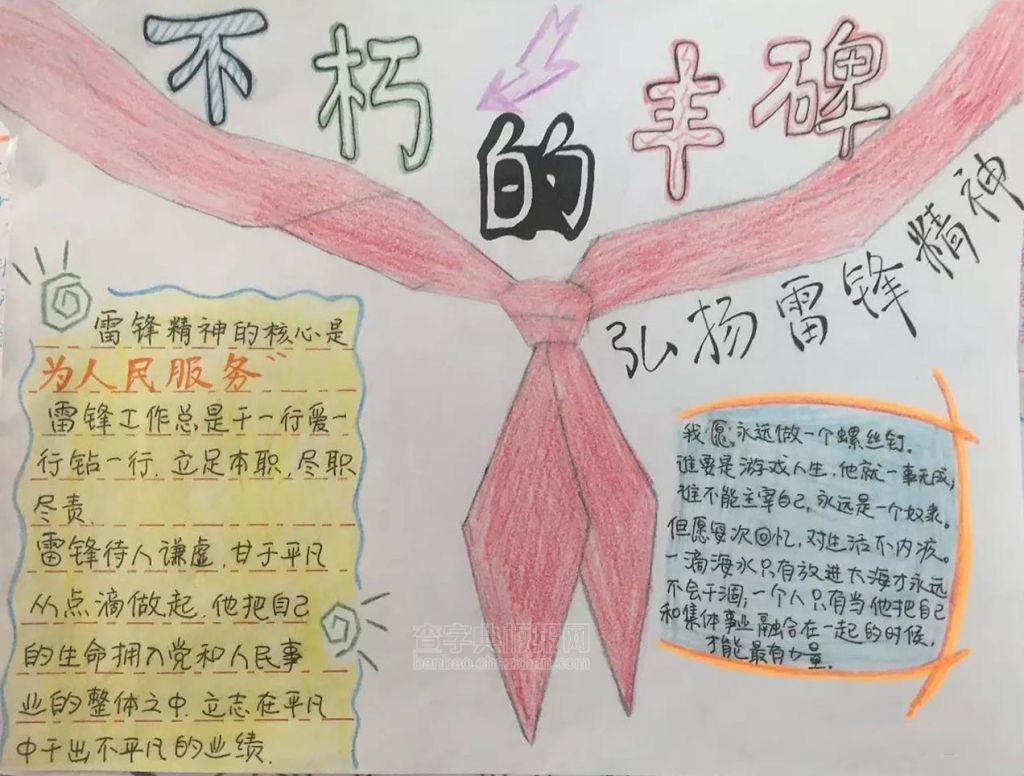 不朽的丰碑
弘扬雷锋精神
雷锋精神的核心是
为人民服务"
雷锋工作总是干一行爱一
行钻一行.立足本职,尽职
尽责.
雷锋待人谦虚,甘于平凡
从点滴做起.他把自己
的生命拥入党和人民事
业的整体之中.立志在平凡
中干出不平凡的业绩.
我愿永远做一个螺丝钉.
谁要是游戏人生,他就一事无成,
谁不能主宰自己,永远是一个奴隶。
但愿每次回忆,对生活不内疚。
一滴海水只有放进大海才永远
不会干涸,一个人只有当他把自己
和集体事业融合在一起的时候,
才能最有力量.
查字典板报网
banbao.chazidian.com